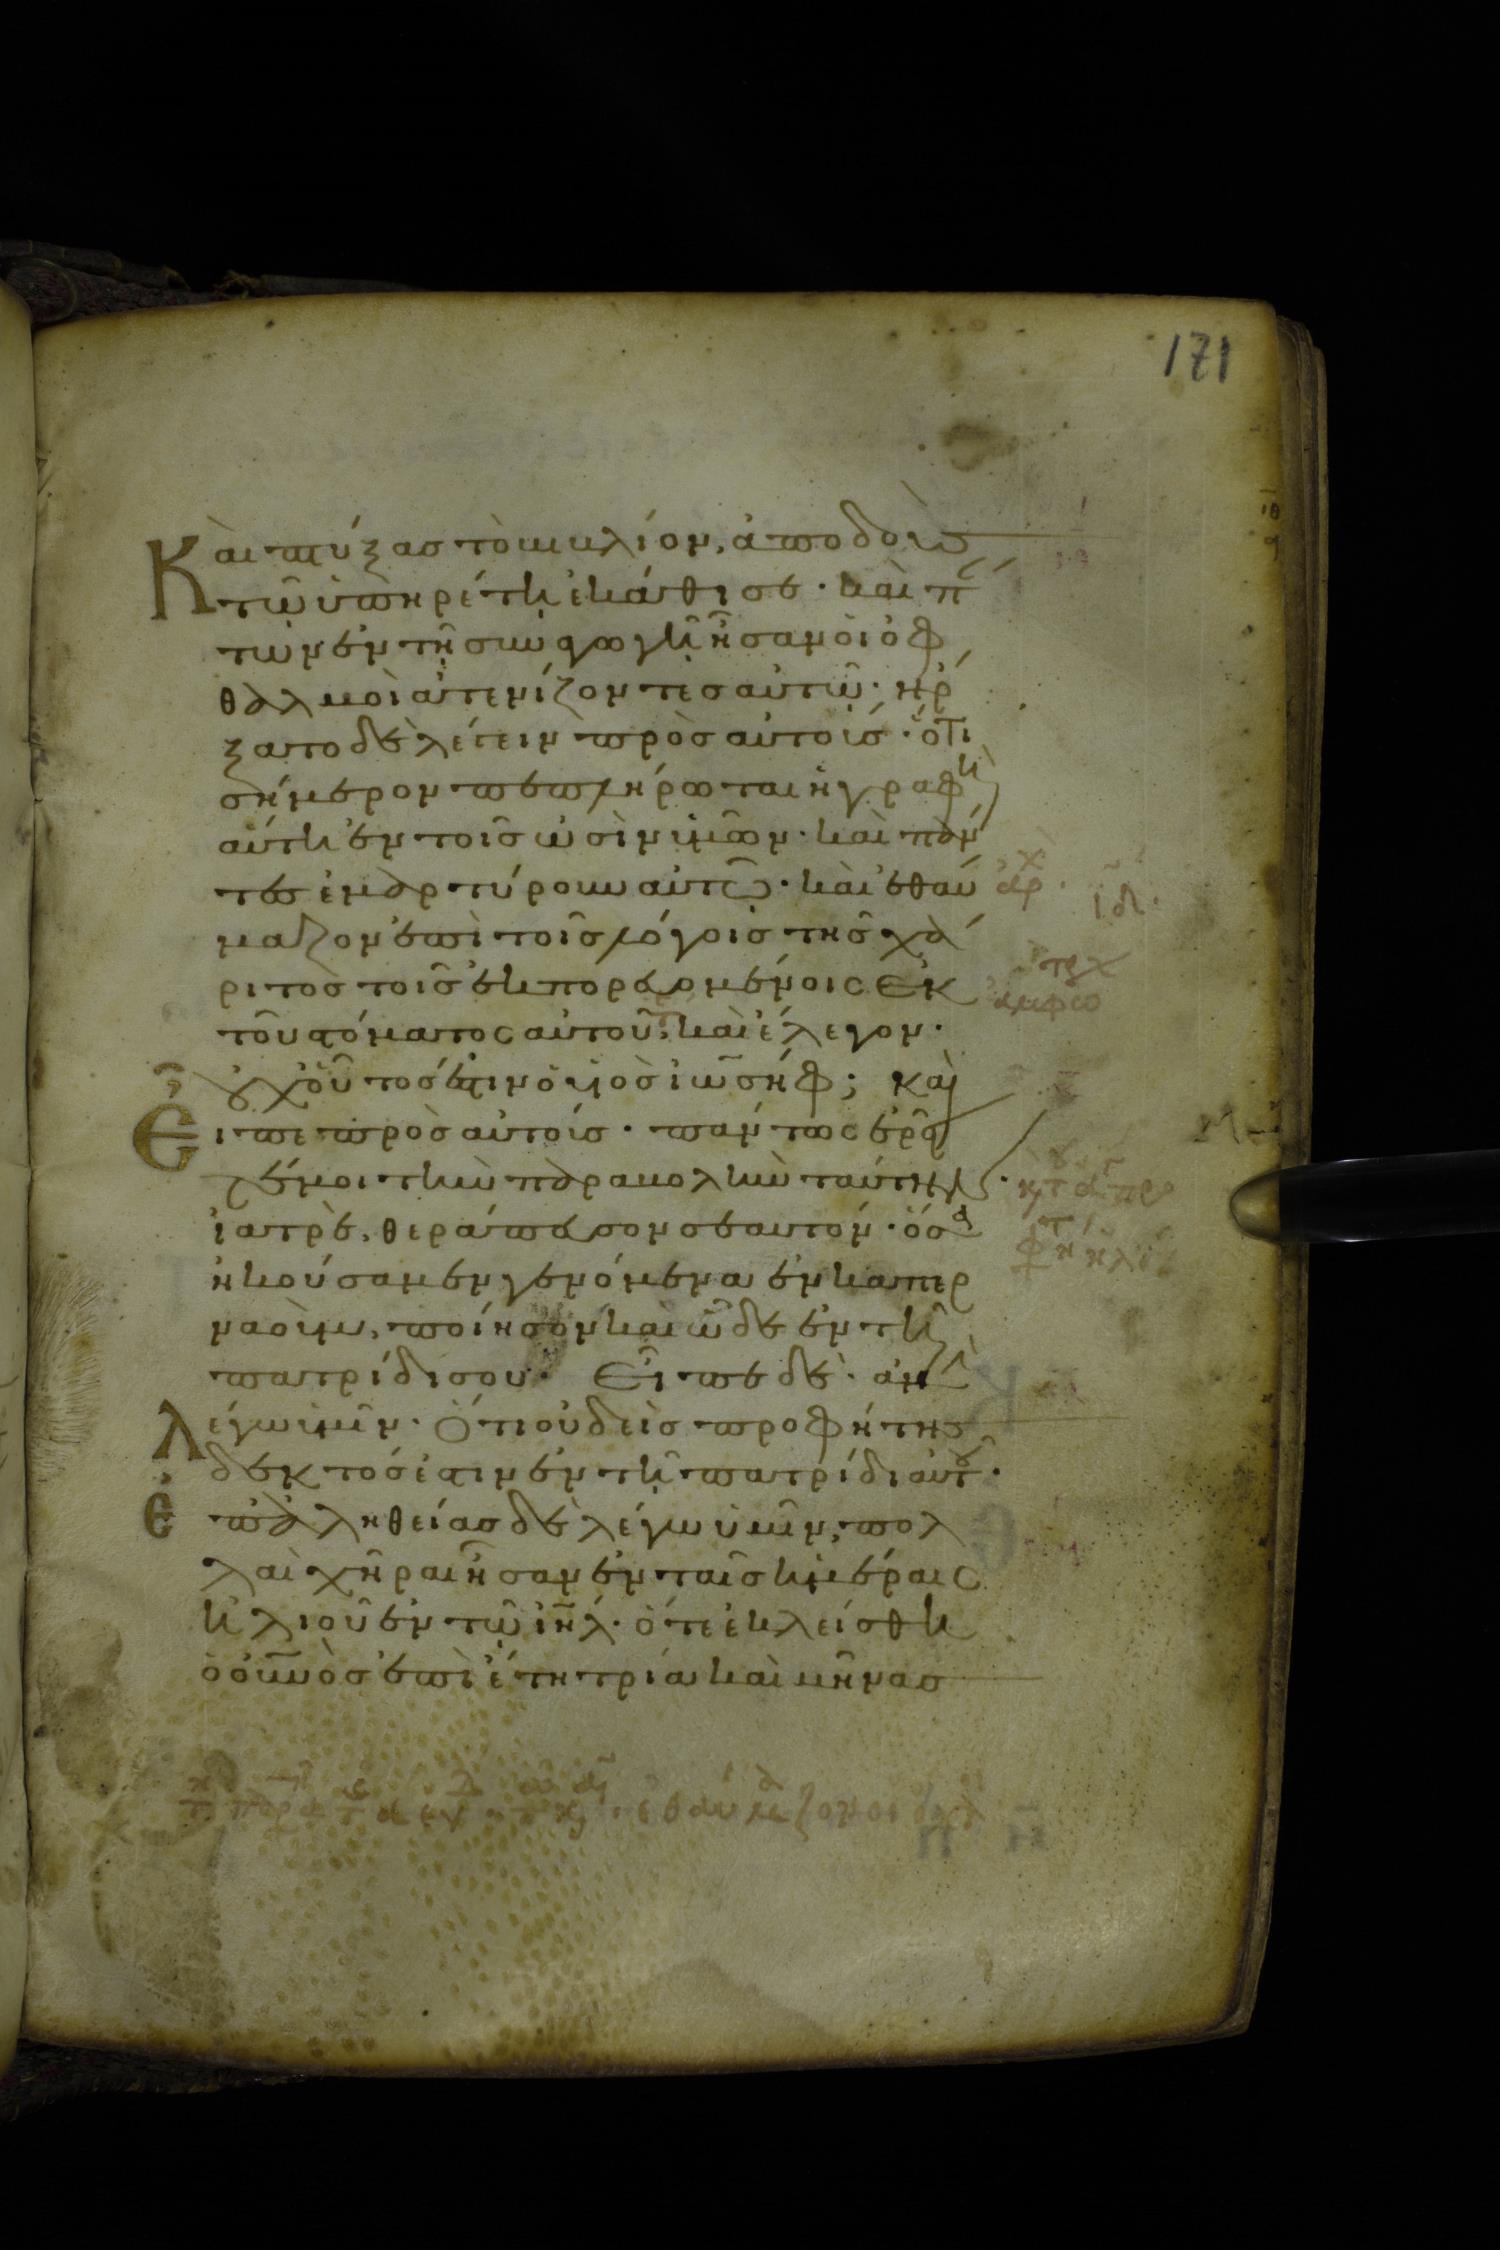 171
Καὶ πτύξας τὸ βιβλίον, ἀποδοὺς
τῶ ὑπηρέτη ἐκάθισε · καὶ πάν
των ἐν τῆ συναγωγῆ ἦσαν οἱ ὀφ
θαλμοὶ ἀτενίζοντες αὐτῶ · ἤρ
ξατο δὲ λέγειν πρὸς αὐτοὺς · ὅτι
σήμερον πεπλήρωται ἡ γραφὴ
αὕτη ἐν τοῖς ὠσὶν ὑμῶν · καὶ πάν
τες ἐμαρτύρουν αὐτῶ · καὶ ἐθαύ
μαζον ἐπὶ τοῖς λόγοις τῆς χά
ριτος τοῖς ἐκπορευομένοις ἐκ
τοῦ στόματος αὐτοῦ, καὶ ἔλεγον ·
οὐχ οὗτός ἐστιν ὁ υἱὸς ἰωσήφ; καὶ
Εἶπε πρὸς αὐτούς · πάντως ἐρεῖ
τέ μοι τὴν παραβολὴν ταύτην ·
ἰατρὲ, θεράπευσον σεαυτόν · ὅσα
ἠκούσαμεν γενόμενα ἐν καπερ
ναοὺμ, ποίησον καὶ ὧδε ἐν τῆ
πατρίδι σου · Εἶπε δὲ · ἀμὴν
Λέγω ὑμῖν · ὅτι οὐδεὶς προφήτης
δεκτός ἐστιν ἐν τῆ πατρίδι αὐτοῦ ·
Ἐπ ἀληθείας δὲ λέγω ὑμῖν, πολ
λαὶ χῆραι ἦσαν ἐν ταῖς ἡμέραις
ἠλιοῦ ἐν τῶ ιηλ · ὅτε ἐκλείσθη
ὁ οὐνὸς ἐπὶ ἔτη τρία καὶ μῆνας